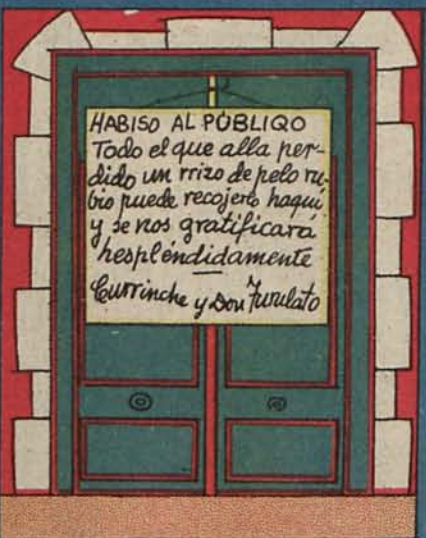 HABISO AL PÚBLIQO
Todo el que alla per-
dido un rrizo de pelo ru-
bio puede recojerlo haquí
y se nos gratificará
hespléndidamente
Currinche y Don Turulato